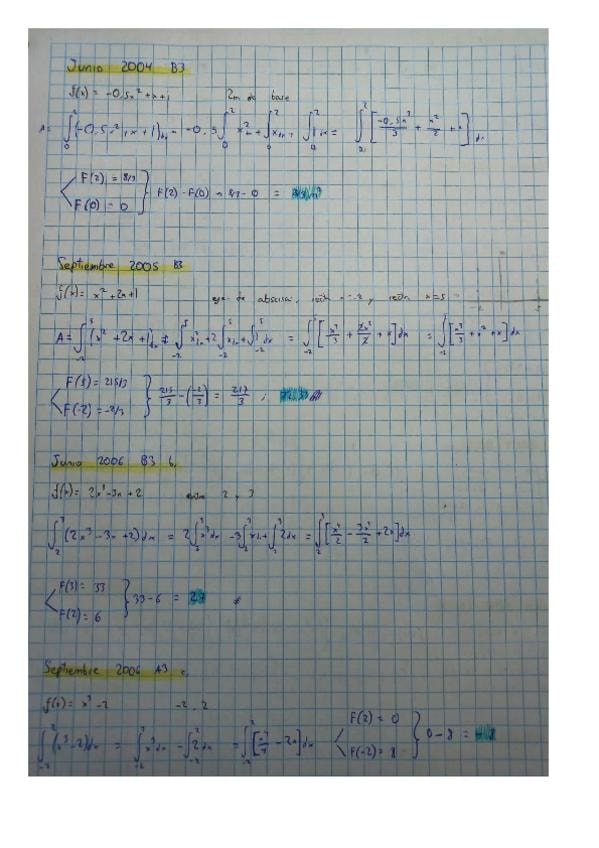 Junio 2004 B3
f(x) = -0,5x² + x + 1 2m de base
A = ∫₀² (-0,5x² + x + 1)dx = -0,5 ∫₀² x² + ∫₀² x dx + ∫₀² 1dx = ∫₀² [-0,5x³/3 + x²/2 + x] dx
F(2) = 8/3
F(0) = 0 } F(2) - F(0) = 8/3 - 0 =
Septiembre 2005 B3
f(x) = x² + 2x + 1 eje de abscisa, recta x = -2 y recta x = 5
-2 5
A = ∫₋₂⁵ (x² + 2x + 1)dx = ∫₋₂⁵ x² dx + 2 ∫₋₂⁵ x dx + ∫₋₂⁵ 1 dx = ∫₋₂⁵ [x³/3 + 2x²/2 + x] dx = ∫₋₂⁵ [x³/3 + x² + x] dx
F(5) = 215/3
F(-2) = -2/3 } 215/3 - (-2/3) = 217/3
Junio 2006 B3 b.
f(x) = 2x³ - 3x + 2 2 y 3
∫₂³ (2x³ - 3x + 2)dx = 2∫₂³ x³ dx - 3∫₂³ x dx + ∫₂³ 2dx = ∫₂³ [x⁴/2 - 3x²/2 + 2x] dx
F(3) = 33
F(2) = 6 } 33 - 6 = 27
Septiembre 2006 A3 c.
f(x) = x³ - 2 -2, 2
∫₋₂² (x³ - 2)dx = ∫₋₂² x³ dx - ∫₋₂² 2dx = ∫₋₂² [x⁴/4 - 2x] dx
F(2) = 0
F(-2) = 8 } 0 - 8 = -8